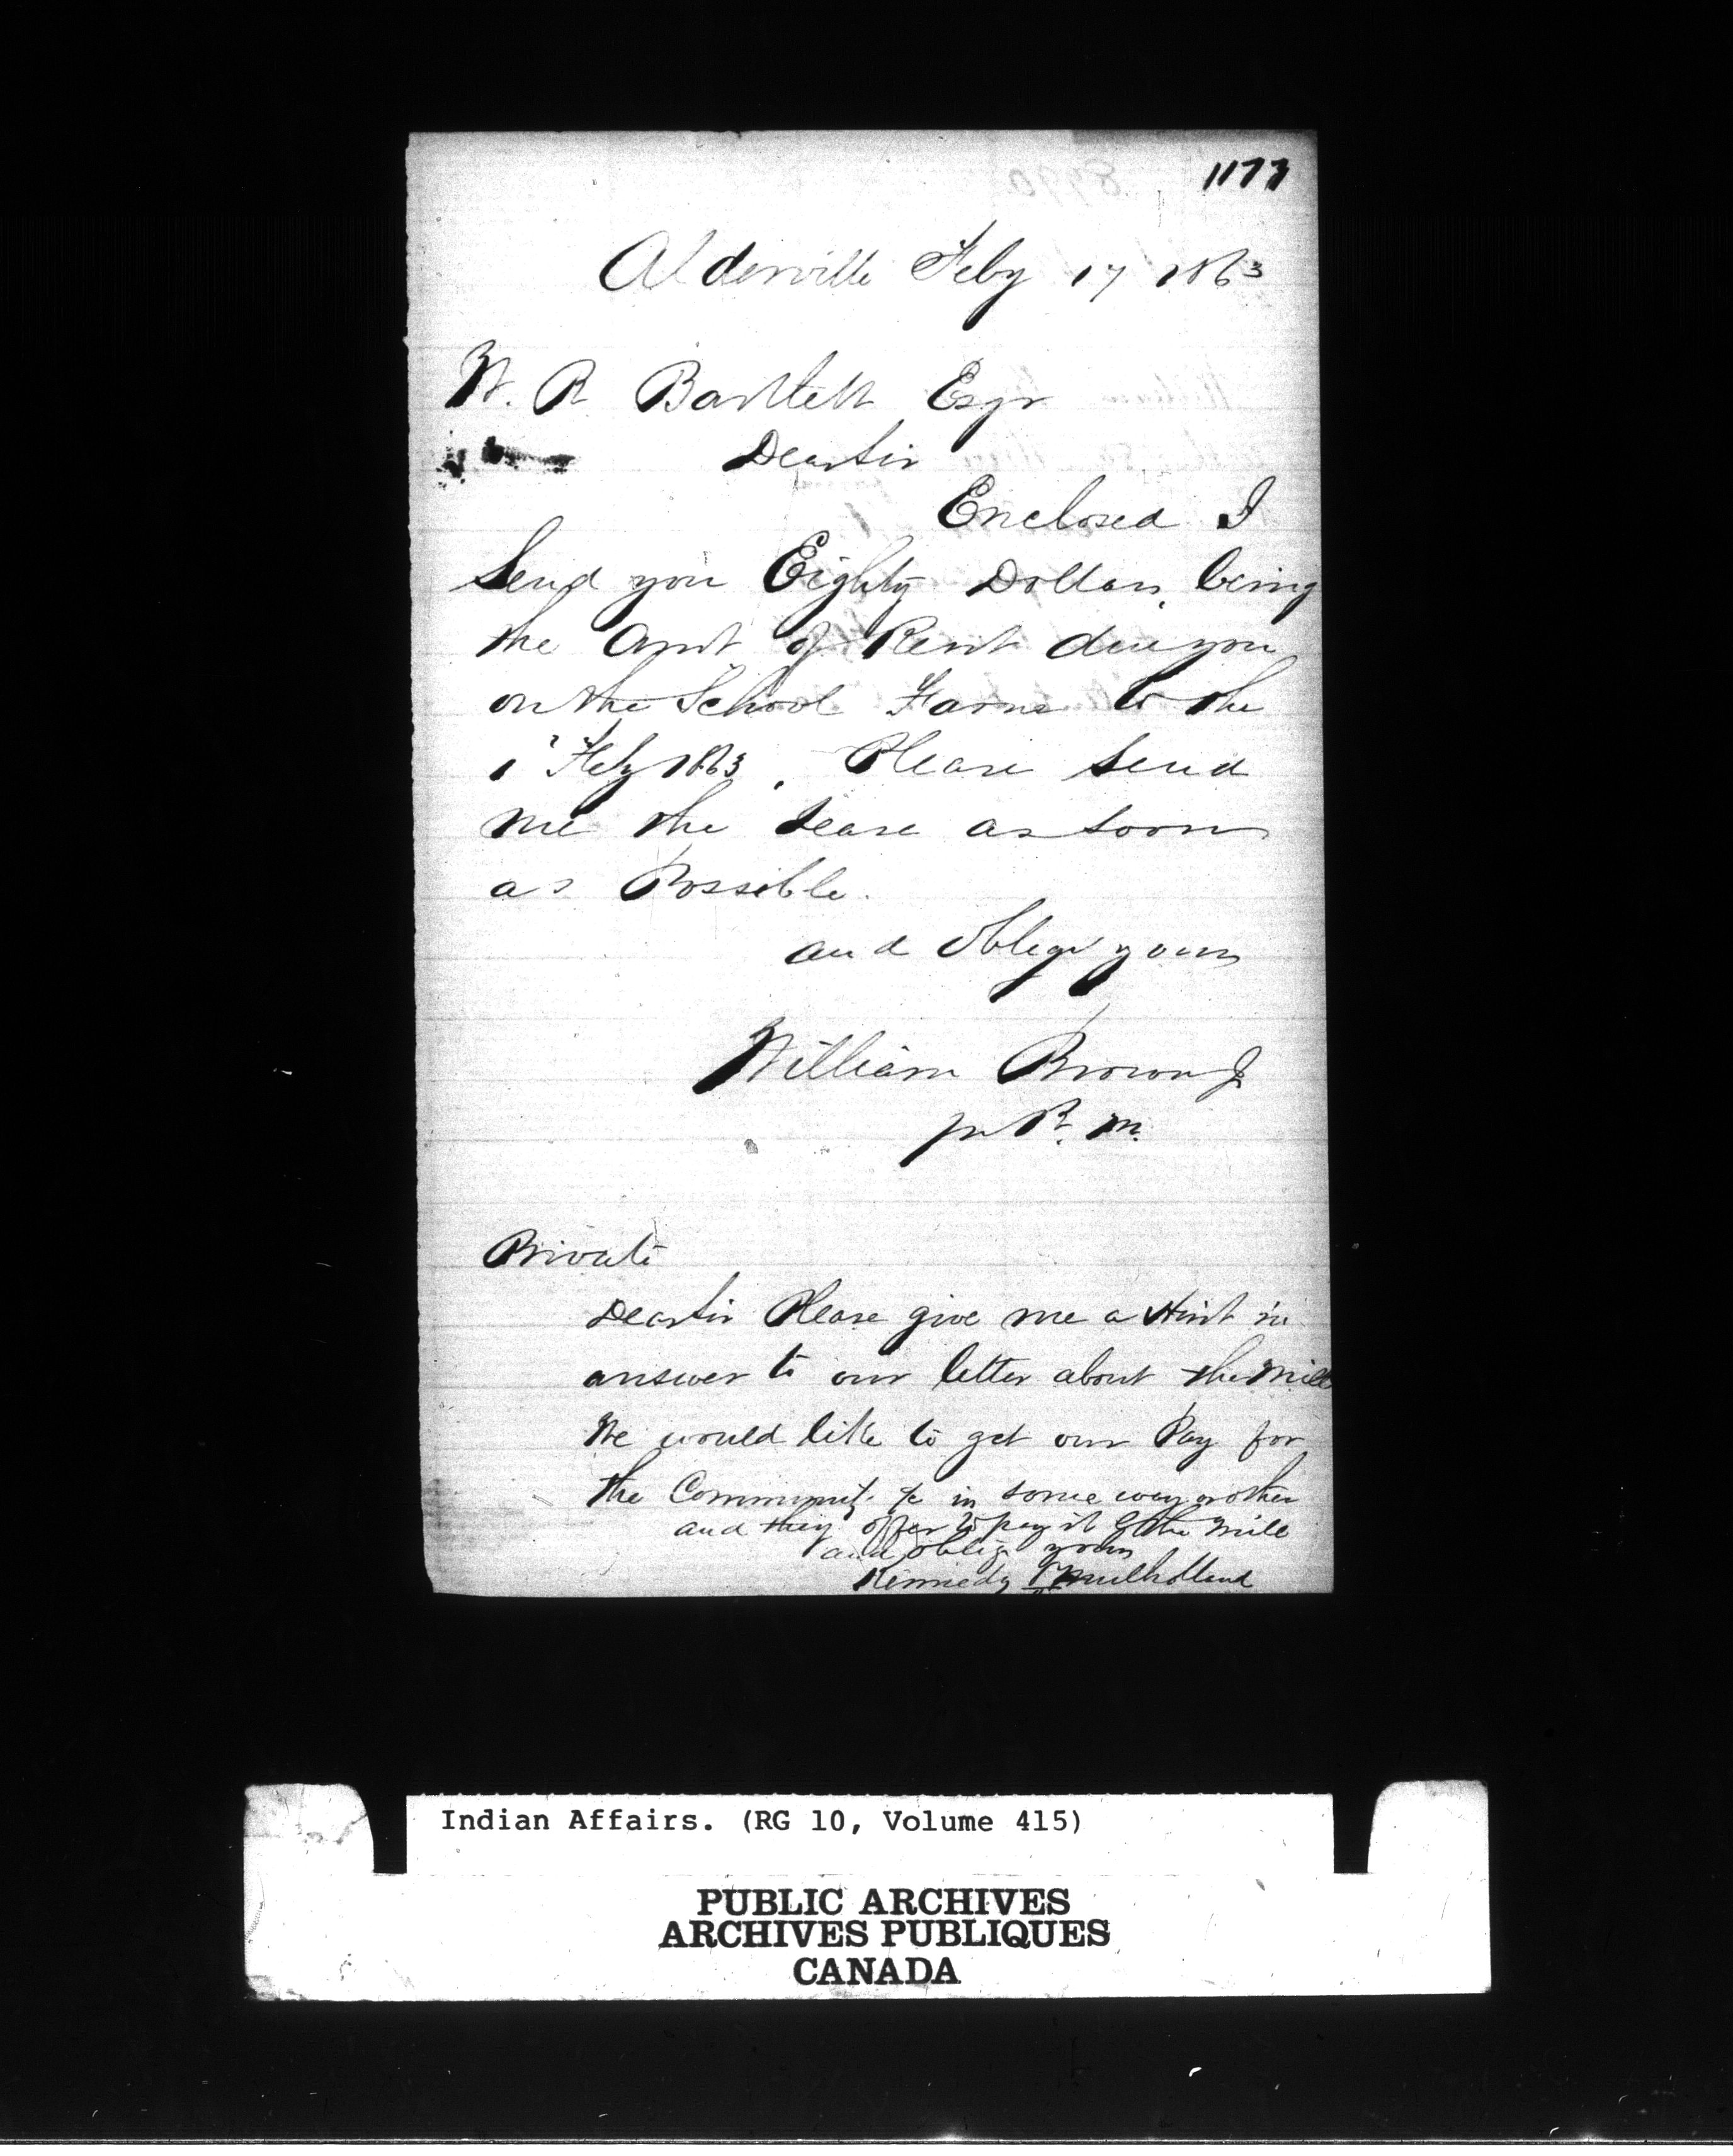 1173
Alderville Feby 17 1863
W. R Bartlett Esqr
Dear Sir
Enclosed I
Send you Eighty Dollars, being
the Amt of Rent due you
on the School Farm to the
1" Feby 1863. Please send
me the Lease as soon
as Possible.
and oblige yours
William Brown J
pr R. M.
Private
Dear Sir Please give me a Hint in
answer to our letter about the Mill
We would like to get our Pay for
the Community &c in some way or other
and they offer to pay it the Mill
and oblige yours
Kennedy & Mulholland
Indian Affairs. (RG 10, Volume 415)
PUBLIC ARCHIVES
ARCHIVES PUBLIQUES
CANADA